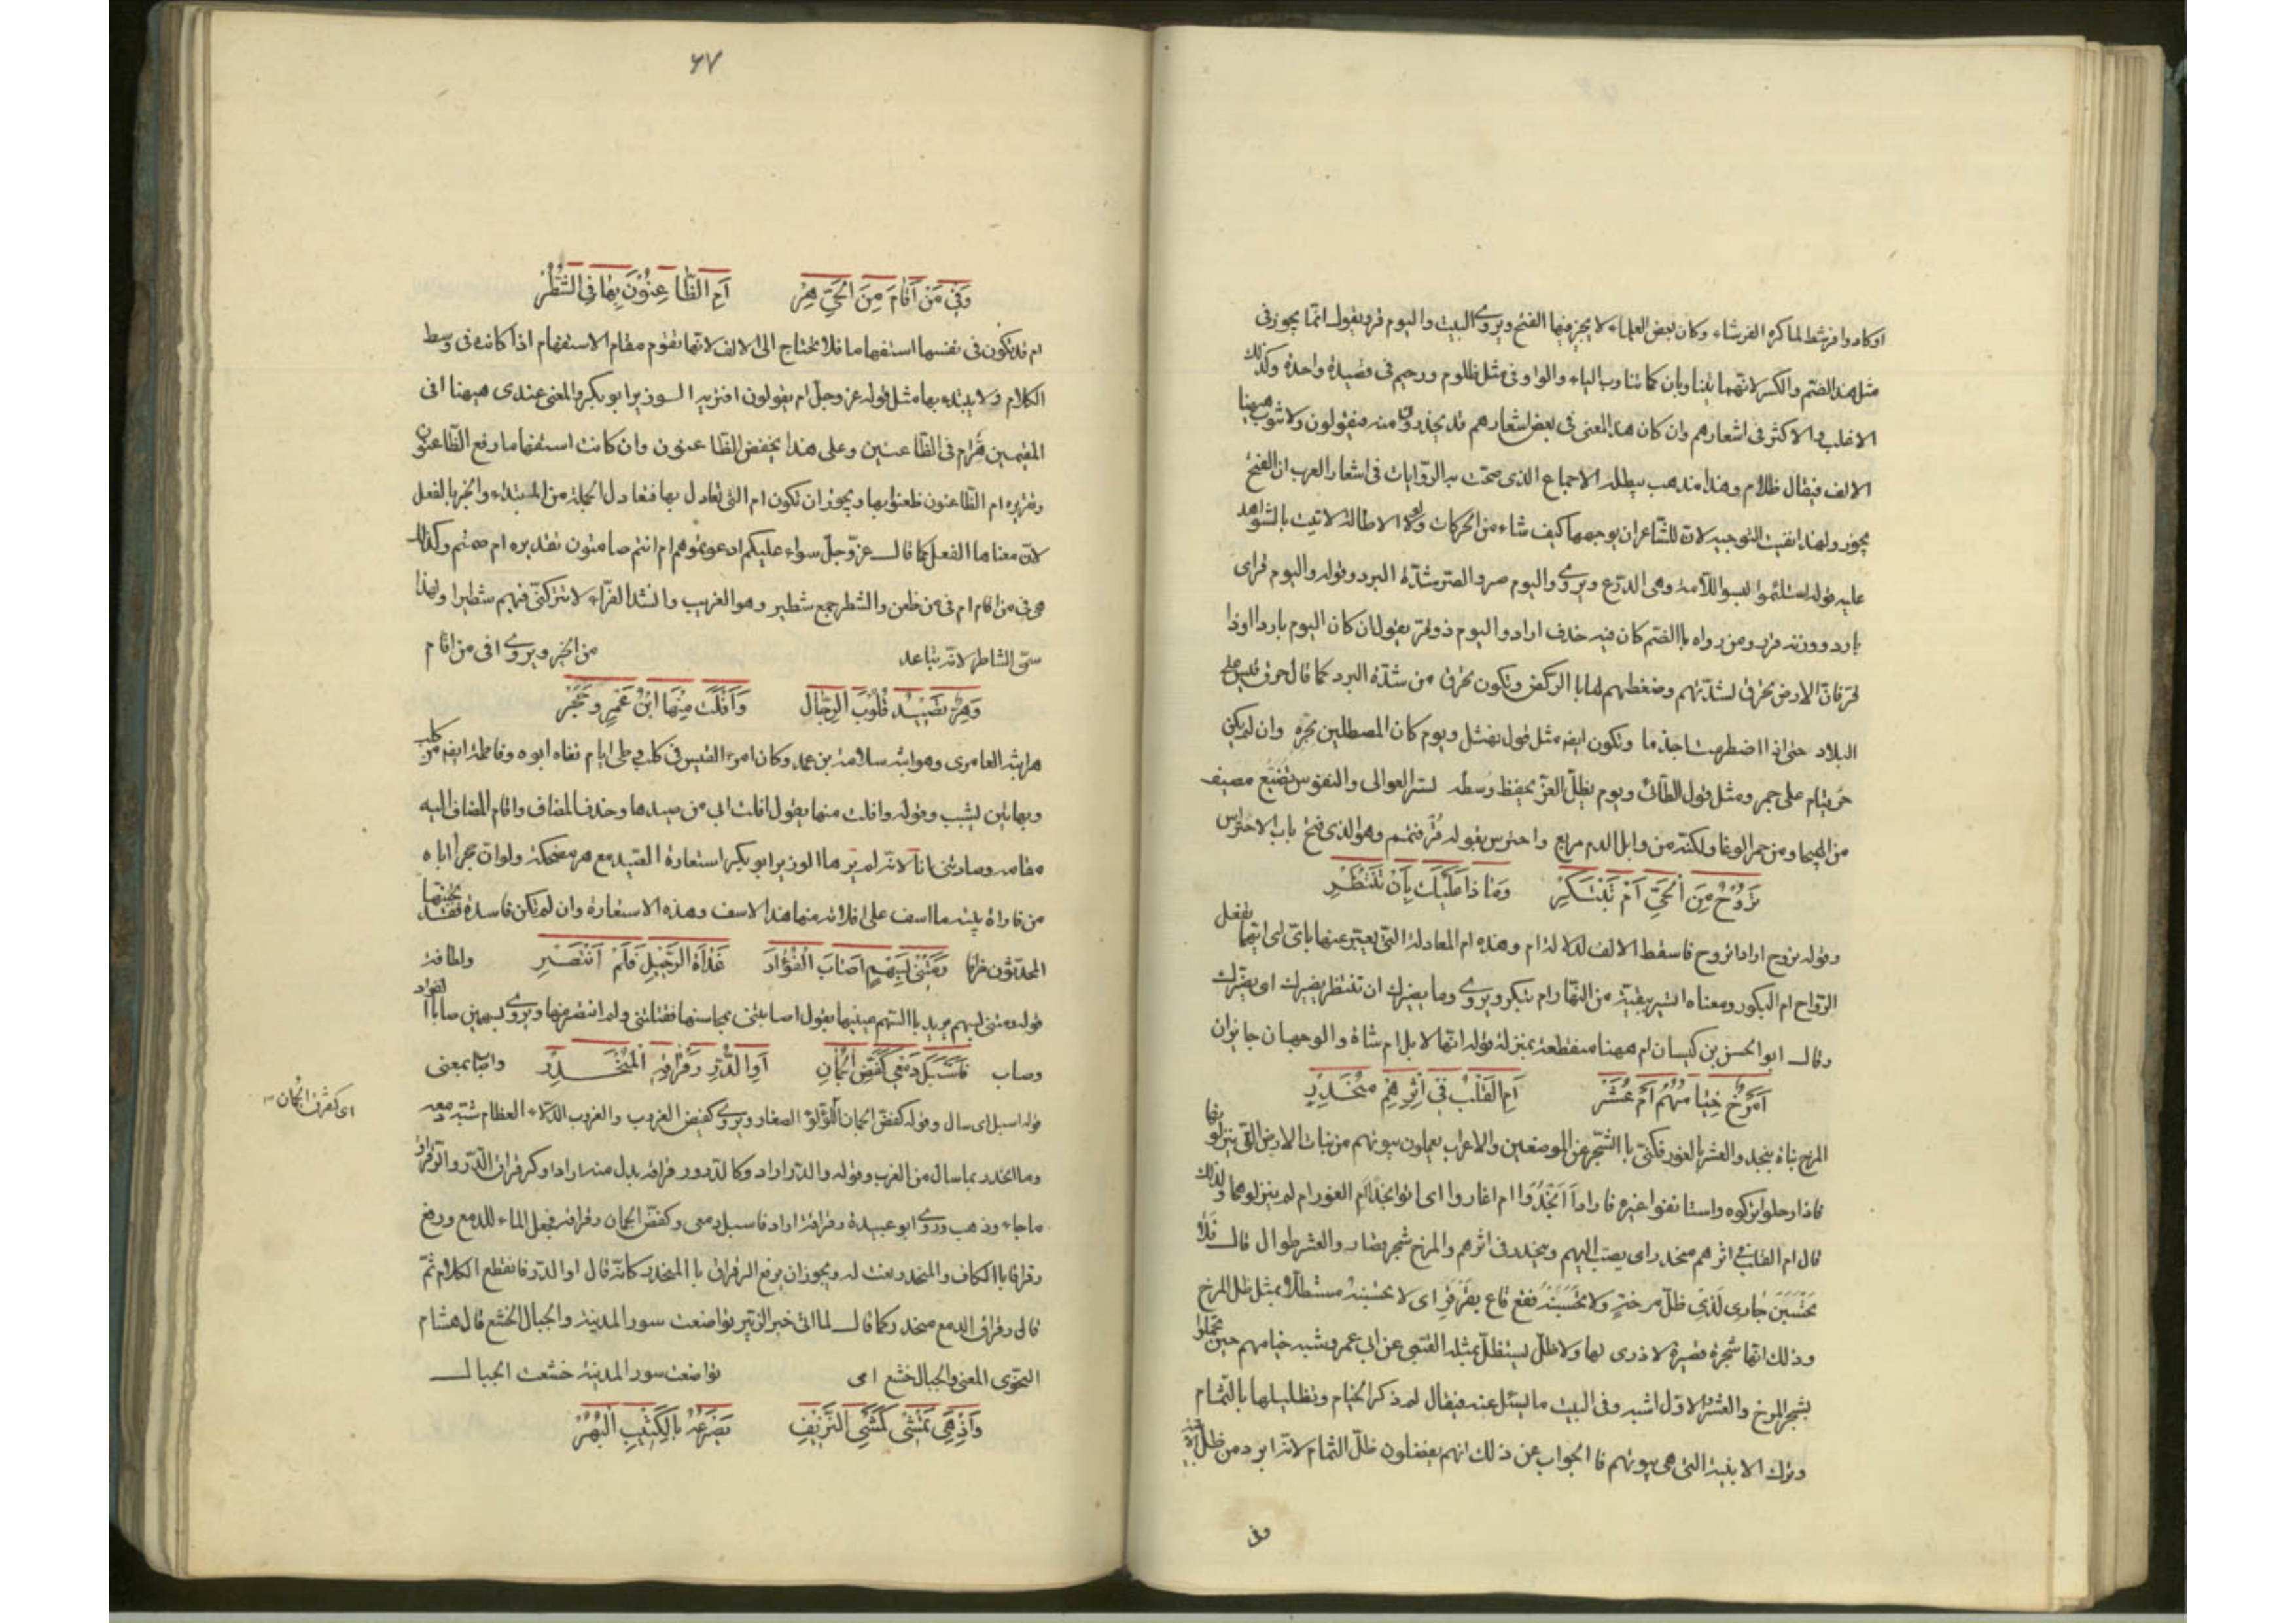 اوكادوا فرشط لما كره الفرشاء وكان بعض العلماء لا يجيز فيها الفتح ويروى البيت واليوم قر ويقول انما يجوز فى
مثل هذا الضم والكسر لانهما يتناوبان كما تناوب الياء والواو فى مثل ظلوم ورحيم فى قصيدة واحدة وكذلك
الاغلب والاكثر فى اشعارهم وان كان هذا المعنى فى بعض اشعارهم قد يحذرون منه فيقولون ولا تنوب ههنا
الالف فيقال ظلام وهذا مذهب يبطله الاجماع الذى صحت به الروايات فى اشعار العرب ان الفتح
يجوز ولهذا لقيت التوجيه لان للشاعر ان يوجهها كيف شاء من الحركات ولولا الاطالة لاتيت بالشواهد
عليه قوله استلئموا لبسوا اللأمة وهى الدرع ويروى واليوم صر والصر شدة البرد وقوله واليوم قر اى
بارد ووزنه فرد ومن رواه باالضم كان فيه حذف اراد واليوم ذو قر يقول ان كان اليوم باردا اوذا
قر فان الارض تحرق لشدتهم وضغطهم لها باالركض وتكون تحرق من شدة البرد كما قال حرق قيس على
البلاد حتى اذا اضطرمت اجذما وتكون ايضه مثل قول نهشل ويوم كان المصطلين بحره وان لم يكن
حر قيام على جمر ومثل قول الطائى ويوم يظل العز يحفظ وسطه لستر العوالى والنفوس تضيع مصيف
من الهيجا ومن جمر الوغا ولكنه من وابل الدم مربع واحترس بقوله قر فتمم وهو الذى فتح باب الاحتراس
تروح من الحى ام تبتكر وماذا عليك بان تنتظر
وقوله تروح اراد اتروح فاسقط الالف لدلالة ام وهذه ام المعادلة التى يعتبر عنها باى اى ايهما تفعل
الرواح ام البكور ومعناه السير بقية من النهار ام تبكر ويروى وما يضرك ان تنتظر يضيرك اى يضرك
وقال ابو الحسن بن كيسان ام ههنا منقطعة بمنزلة قوله انها لابل ام شاة والوجهان جائزان
امرخ خيامهم ام عشر ام القلب فى اثرهم منحدر
المرخ نباة بنجد والعشر بالغور فكنى باالشجر عن الموضعين والاعراب يعملون بيوتهم من نبات الارض التى ينزلوا بها
فاذا رحلوا تركوه واستانفوا غيره فاراد أ انجدوا ام اغاروا اى اتوا نجدا ام الغور ام لم ينزلوهما ولذلك
قال ام القلب فى اثرهم منحدر اى يصب اليهم وينحدر فى اثرهم والمرخ شجر قصار والعشر طوال قال فلا
تحسبن جارى لذى ظل مرخة ولا تحسبنه فقع قاع بقرقر اى لا تحسبنه مستظلا بمثل ظل المرخ
وذلك انها شجرة قصيرة لا ذرى لها ولا ظل ليستظل بمثله القتبى عن ابى عمرو شبه خيامهم حين تحملوا
بشجر المرخ والعشر والاول اشبه وفى البيت ما يسئل عنه فيقال لم ذكر الخيام وتظليلها بالثمام
وترك الابنية التى هى بيوتهم فا الجواب عن ذلك انهم يفضلون ظل الثمام لانه ابرد من ظل
وفى
٤٧
وفى من اقام من الحى هر ام الظاعنون بها فى الشطر
ام قد تكون فى نفسها استفهاما فلا تحتاج الى الالف لانها تقوم مقام الاستفهام اذا كانت فى وسط
الكلام ولا يبتدء بها مثل قوله عز وجل ام يقولون افتريه الوزير ابو بكر والمعنى عندى ههنا افى
المقيمين هر ام فى الظاعنين وعلى هذا يخفض الظاعنون وان كانت استفهاما رفع الظاعنون
وتقديره ام الظاعنون ظعنوا بها ويجوز ان تكون ام التى تعادل بها فتعادل الجملة من المبتدء والخبر بالفعل
لان معناها الفعل كما قال عز وجل سواء عليكم ادعوتموهم ام انتم صامتون تقديره ام صمتم وكذلك
هى فى من اقام ام فى من ظعن والشطر جمع شطير وهو الغريب وانشد الفراء لا تتركنى فيهم شطيرا ولهذا
سمى الشاطر لانه تباعد من الخير ويروى افى من اقام
وهر تصيد قلوب الرجال وافلت منها ابن عمر و حجر
هر ابنة العامرى وهو ابنه سلامة بن عمد وكان امرء القيس فى كلب وطى ايام نفاه ابوه وفاطمة ايضه من كلب
وبهاتين يشبب وقوله وافلت منها يقول افلت ابى من صيدها وحذف المضاف واقام المضاف اليه
مقامه وصادتنى انا لانه لم يرها الوزير ابو بكر استعارة الصيد مع هر مضحكة ولو ان حجرا اباه
من فاراة بيته ما اسف على افلاته منها هذا الاسف وهذه الاستعارة وان لم تكن فاسدة فقد يجتنبها
المحدثون ظرفا ولطافة رمتنى بسهم اصاب الفؤاد غداة الرحيل فلم انتصر
قوله رمتنى بسهم يريد باالسهم عينيها يقول اصابتنى بمحاسنها فقتلتنى ولم انتصر منها ويروى بسهمين صابا الفواد
وصاب واصاب بمعنى فاسبل دمعى كفض الجمان او الدر رقراقه المنحدر
قوله اسبل اى سال وقوله كفض الجمان اللؤلؤ الصغار ويروى كفيض الغروب والغروب الدلاء العظام شبه دمعه
وما انحدر بما سال من الغرب وقوله والدر اراد وكالدر ورقراقه بدل منه اراد او كرقراق الدر والرقراق
ما جاء وذهب وروى ابو عبيدة رقراقة اراد فاسبل دمعى وكفض الجمان رقراقه فجعل الماء للدمع ورفع
رقراقا باالكاف والمنحدر نعت له ويجوز ان يرفع الرقراق باالمنحدر كانه قال او الدر فانقطع الكلام ثم
قال رقراق الدمع منحدر كما قال لما اتى خبر الزبير تواضعت سور المدينة والجبال الخشع قال هشام
النحوى المعنى والجبال خشع اى تواضعت سور المدينة خشعت الجبال
واذ هى تمشى كمشى النزيف يصرعه بالكثيب البهر
اى كفرق الجمان